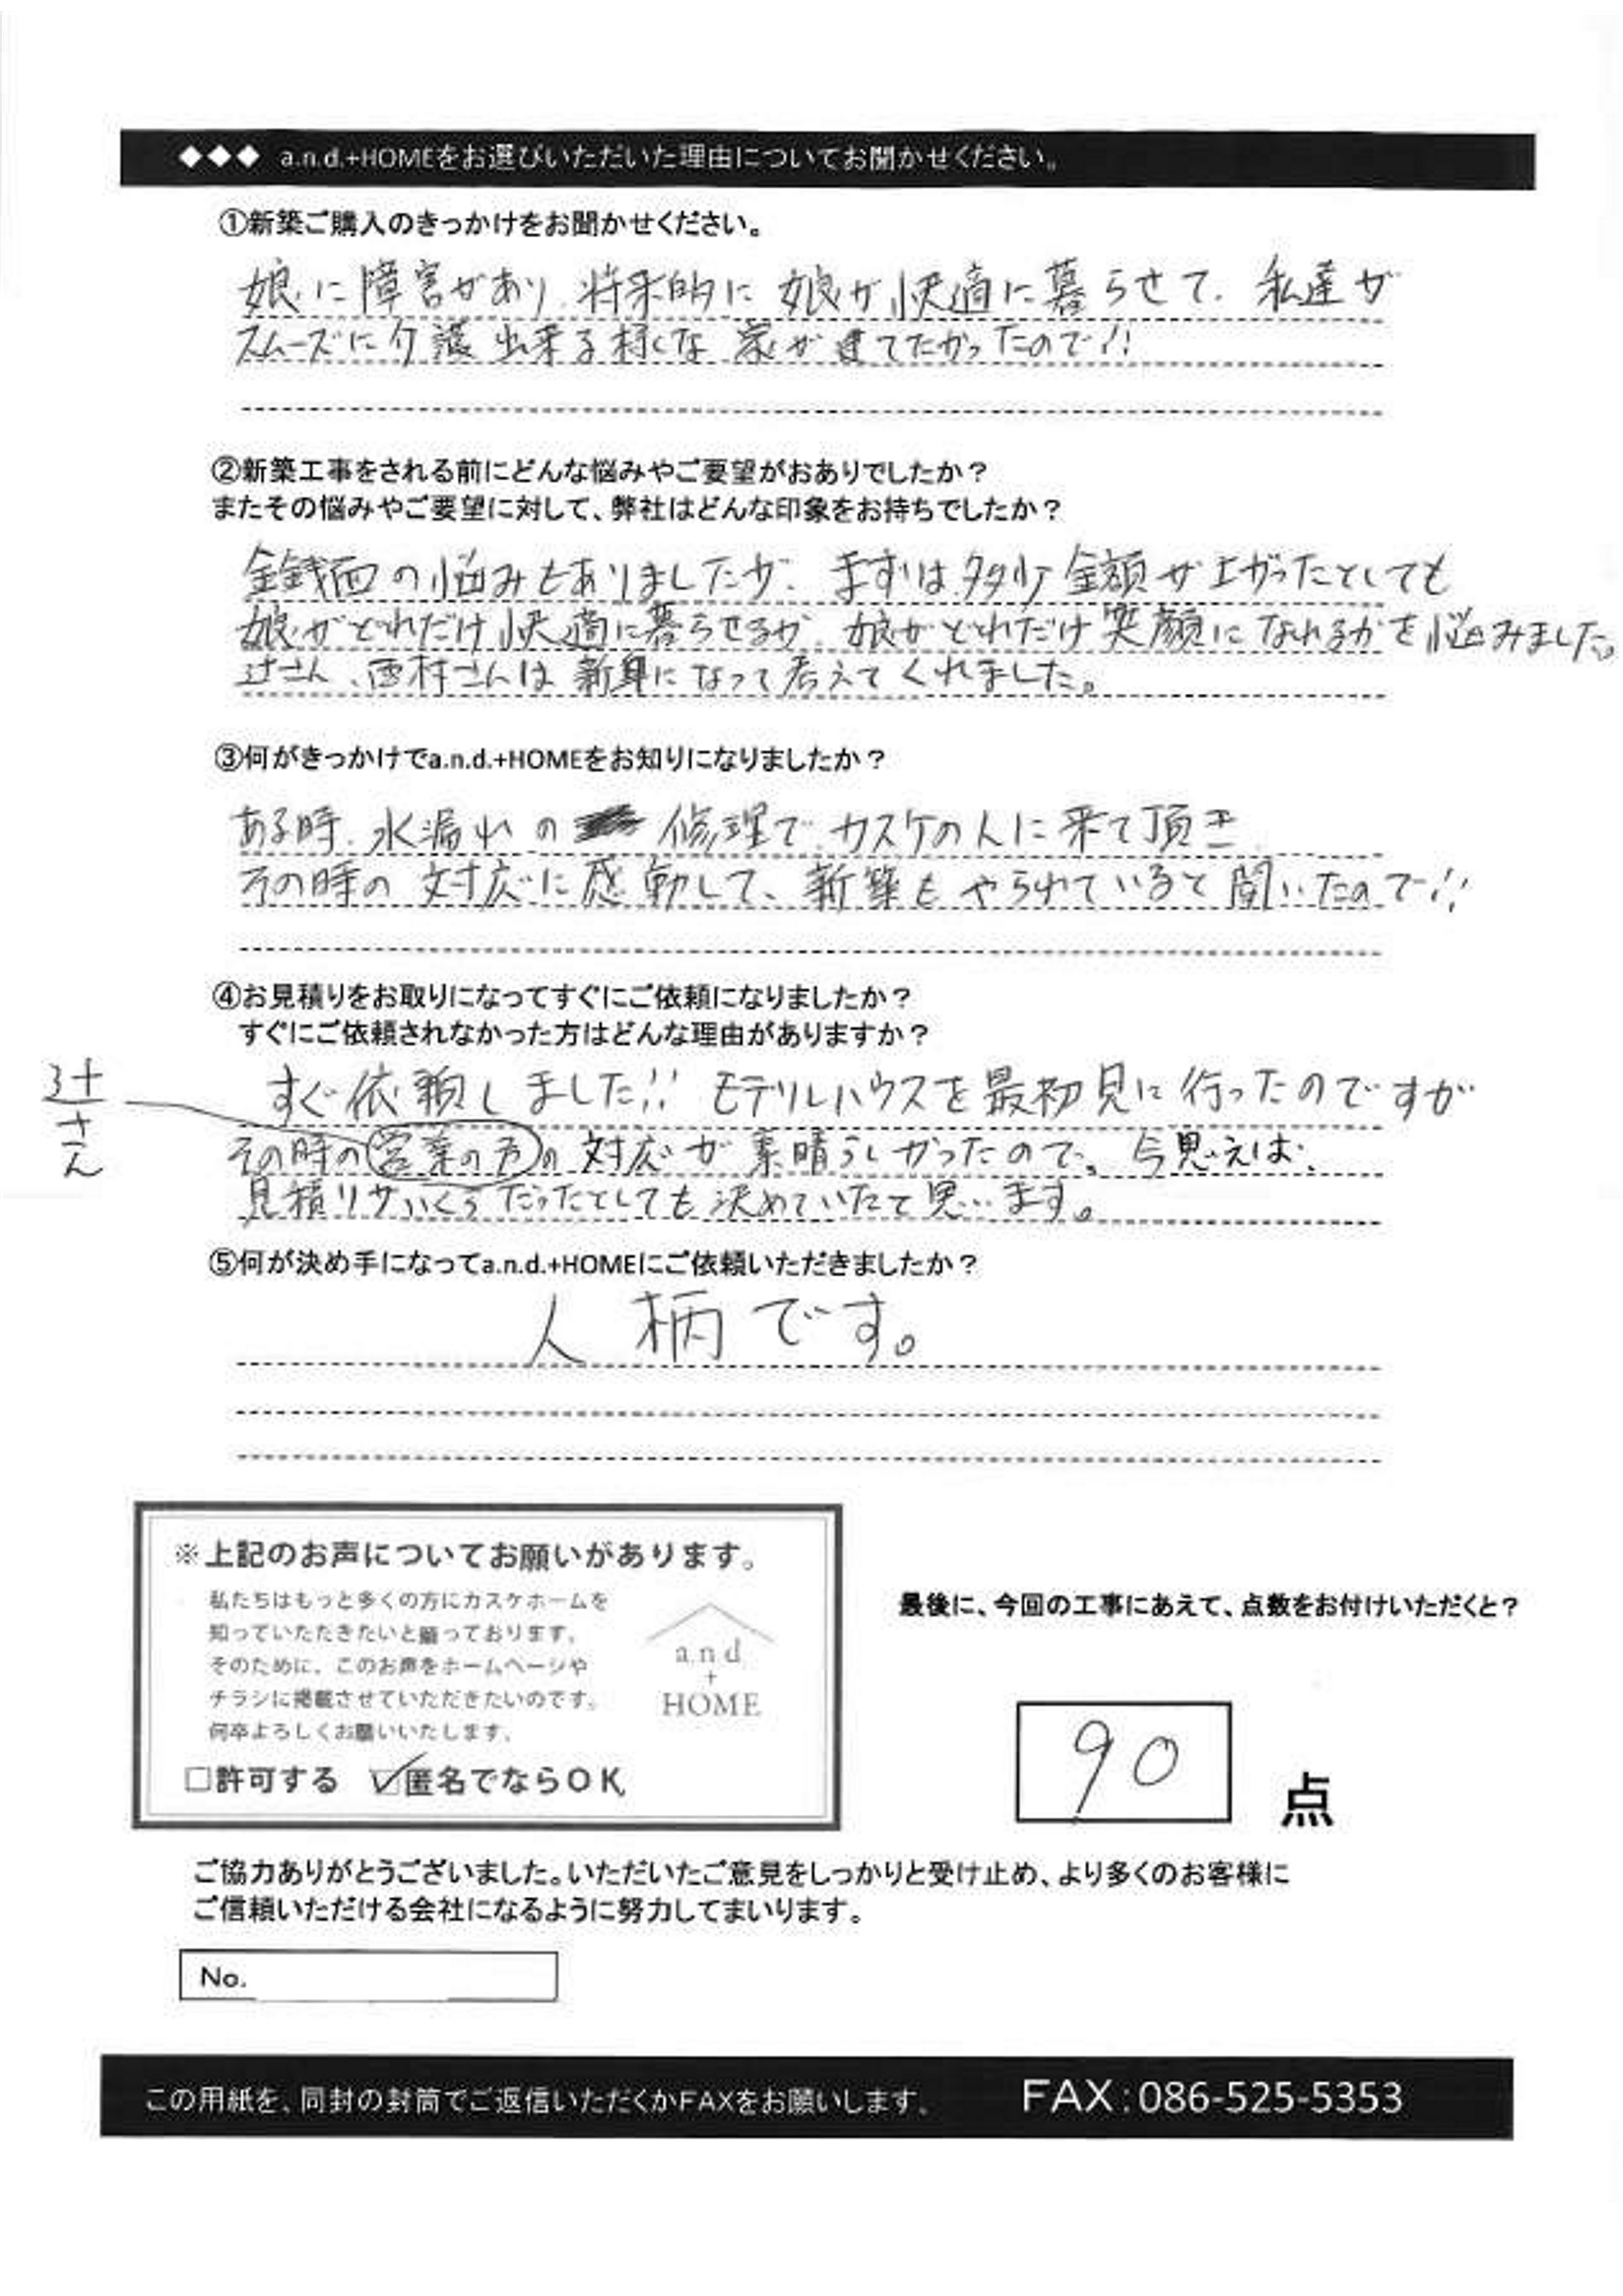 ◆◆◆ a.n.d.+HOMEをお選びいただいた理由についてお聞かせください。
①新築ご購入のきっかけをお聞かせください。
娘に障害があり、将来的に娘が快適に暮らせて、私達が
スムーズに介護出来る様な家が建てたかったので!!
②新築工事をされる前にどんな悩みやご要望がおありでしたか？
またその悩みやご要望に対して、弊社はどんな印象をお持ちでしたか？
金銭面の悩みもありましたが、まずは多少金額が上がったとしても
娘がどれだけ快適に暮らせるか、娘がどれだけ笑顔になれるかを悩みました。
辻さん、西村さんは新身になって考えてくれました。
③何がきっかけでa.n.d.+HOMEをお知りになりましたか？
ある時、水漏れの修理でカスケの人に来て頂き
その時の対応に感動して、新築もやられていると聞いたので!!
④お見積りをお取りになってすぐにご依頼になりましたか？
すぐにご依頼されなかった方はどんな理由がありますか？
すぐ依頼しました!! モデルハウスを最初見に行ったのですが
辻さん
その時の営業の方の対応が素晴らしかったので、今思えば、
見積りがいくらだったとしても決めていたと思います。
⑤何が決め手になってa.n.d.+HOMEにご依頼いただきましたか？
人柄です。
※上記のお声についてお願いがあります。
私たちはもっと多くの方にカスケホームを
知っていただきたいと願っております。
そのために、このお声をホームページや
チラシに掲載させていただきたいのです。
何卒よろしくお願いいたします。
a.n.d.
+
HOME
□許可する ☑匿名でならOK
最後に、今回の工事にあえて、点数をお付けいただくと？
90 点
ご協力ありがとうございました。いただいたご意見をしっかりと受け止め、より多くのお客様に
ご信頼いただける会社になるように努力してまいります。
No.
この用紙を、同封の封筒でご返信いただくかFAXをお願いします。 FAX：086-525-5353